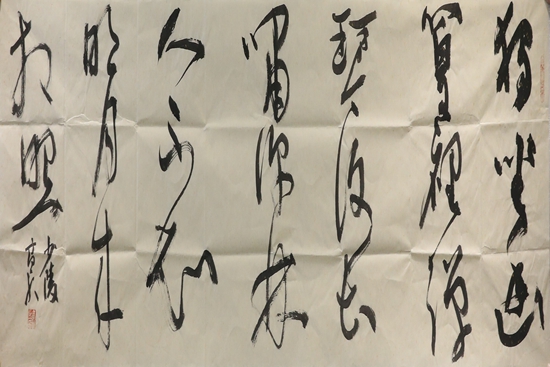 独坐幽
篁裡弹
琴复长
啸深林
人不知
明月来
相照
少陵